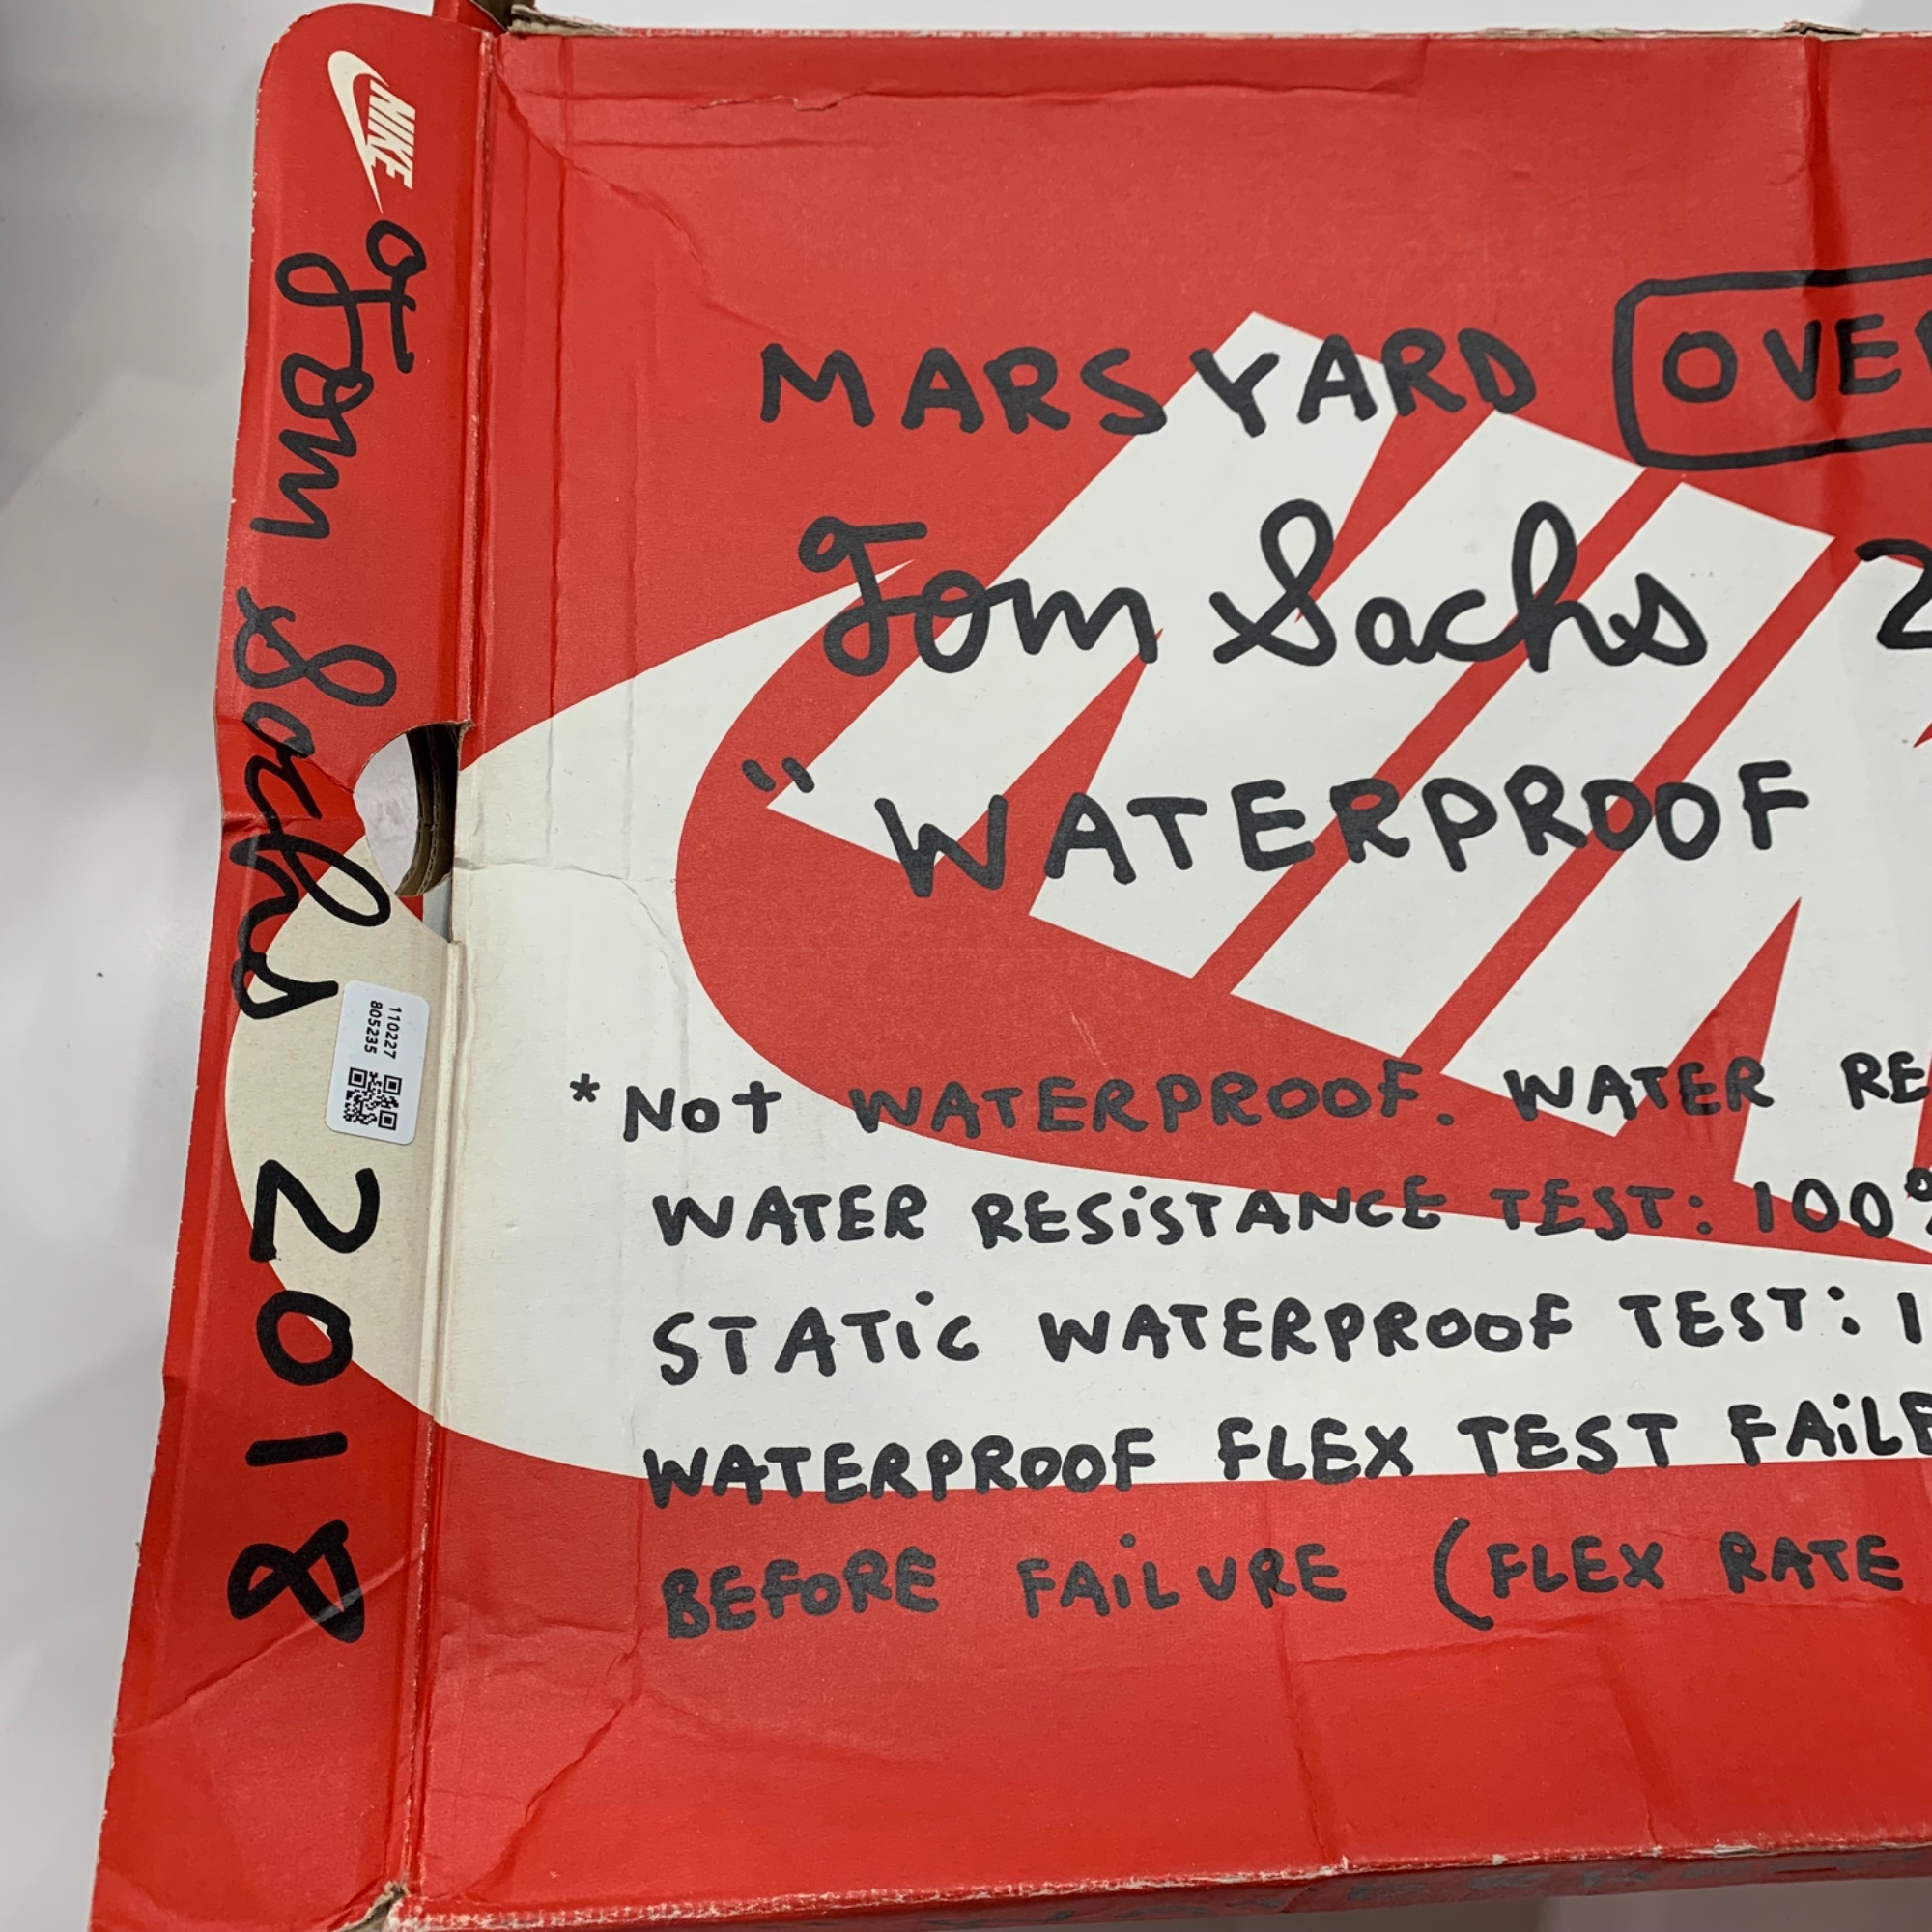 NIKE
Tom Sachs 2018
110227
805235
MARSYARD OVE
Tom Sachs 2
"WATERPROOF
*Not WATERPROOF. WATER RE
WATER RESiSTANCE TEST: 100%
STATiC WATERPROOF TEST: 1
WATERPROOF FLEX TEST FAiLE
BEFORE FAiLURE (FLEX RATE